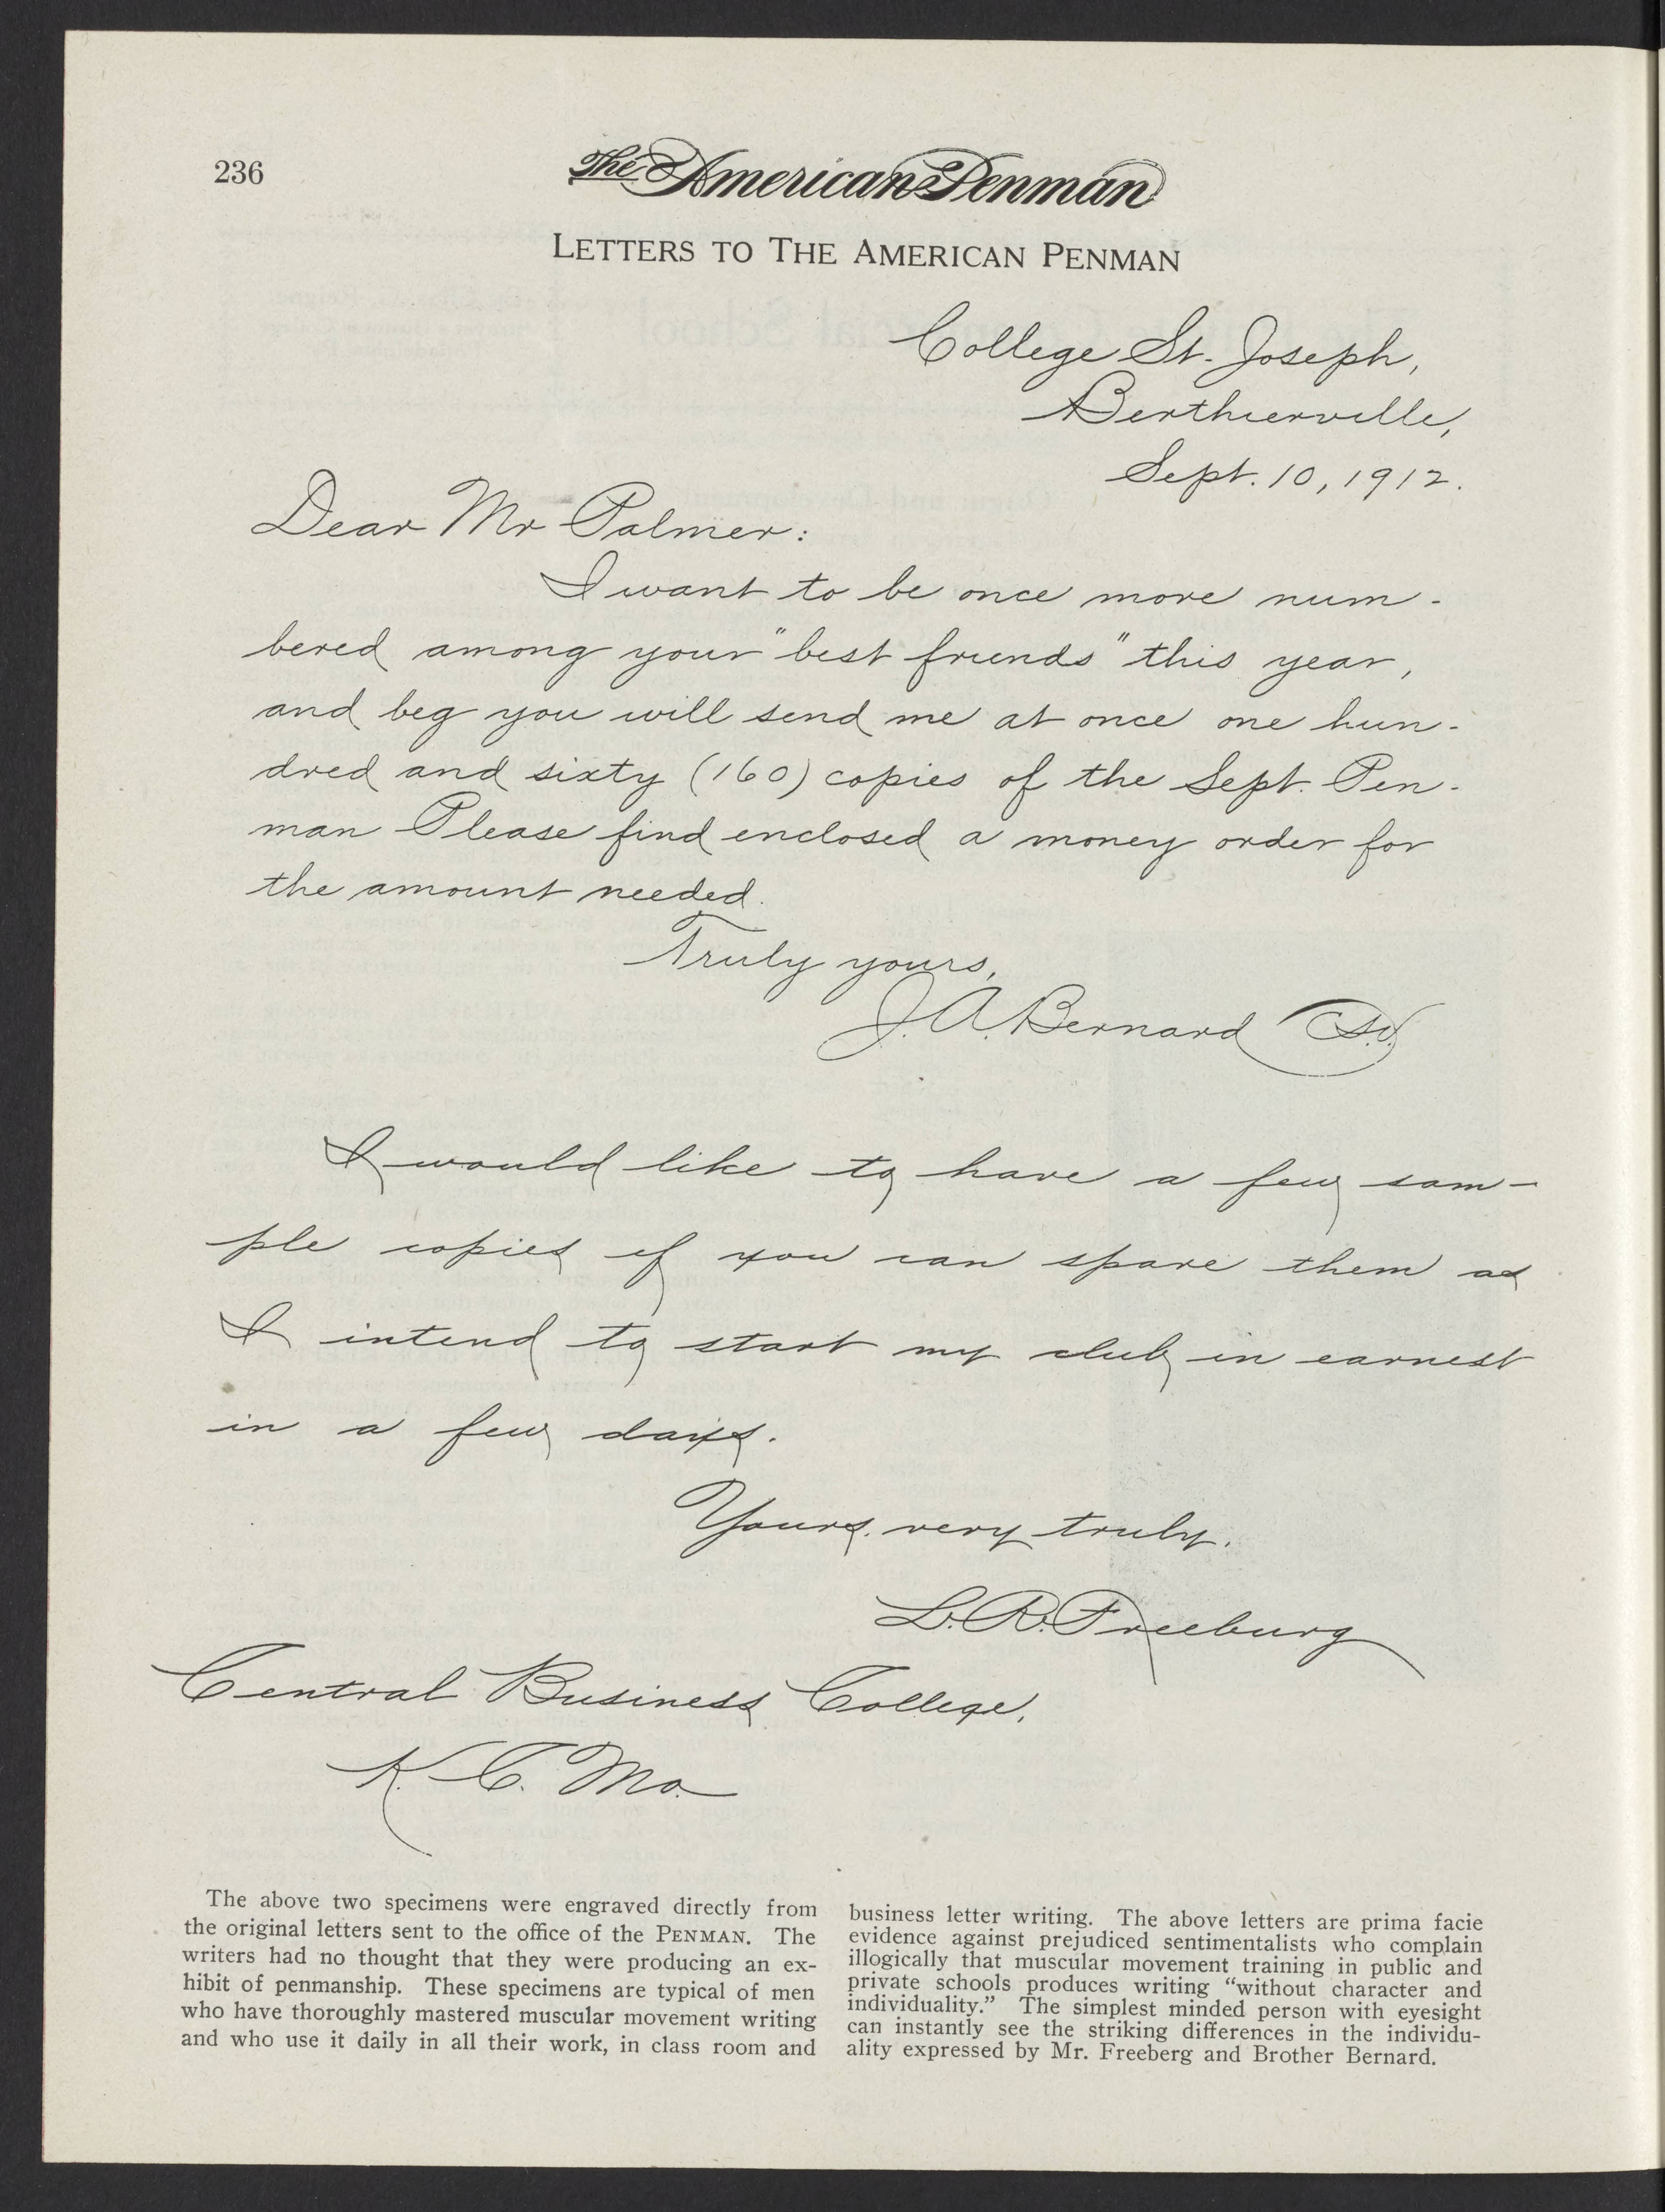 236
The American Penman
LETTERS TO THE AMERICAN PENMAN
College St. Joseph,
Berthierville,
Sept. 10, 1912.
Dear Mr Palmer:
I want to be once more num-
bered among your "best friends" this year,
and beg you will send me at once one hun-
dred and sixty (160) copies of the Sept. Pen-
man Please find enclosed a money order for
the amount needed.
Truly yours,
J. A. Bernard
I would like to have a few sam-
ple copies if you can spare them as
I intend to start my club in earnest
in a few days.
Yours very truly.
L. R. Freeburg
Central Business College,
K. C. Mo.
The above two specimens were engraved directly from
the original letters sent to the office of the PENMAN. The
writers had no thought that they were producing an ex-
hibit of penmanship. These specimens are typical of men
who have thoroughly mastered muscular movement writing
and who use it daily in all their work, in class room and
business letter writing. The above letters are prima facie
evidence against prejudiced sentimentalists who complain
illogically that muscular movement training in public and
private schools produces writing “without character and
individuality.” The simplest minded person with eyesight
can instantly see the striking differences in the individu-
ality expressed by Mr. Freeberg and Brother Bernard.